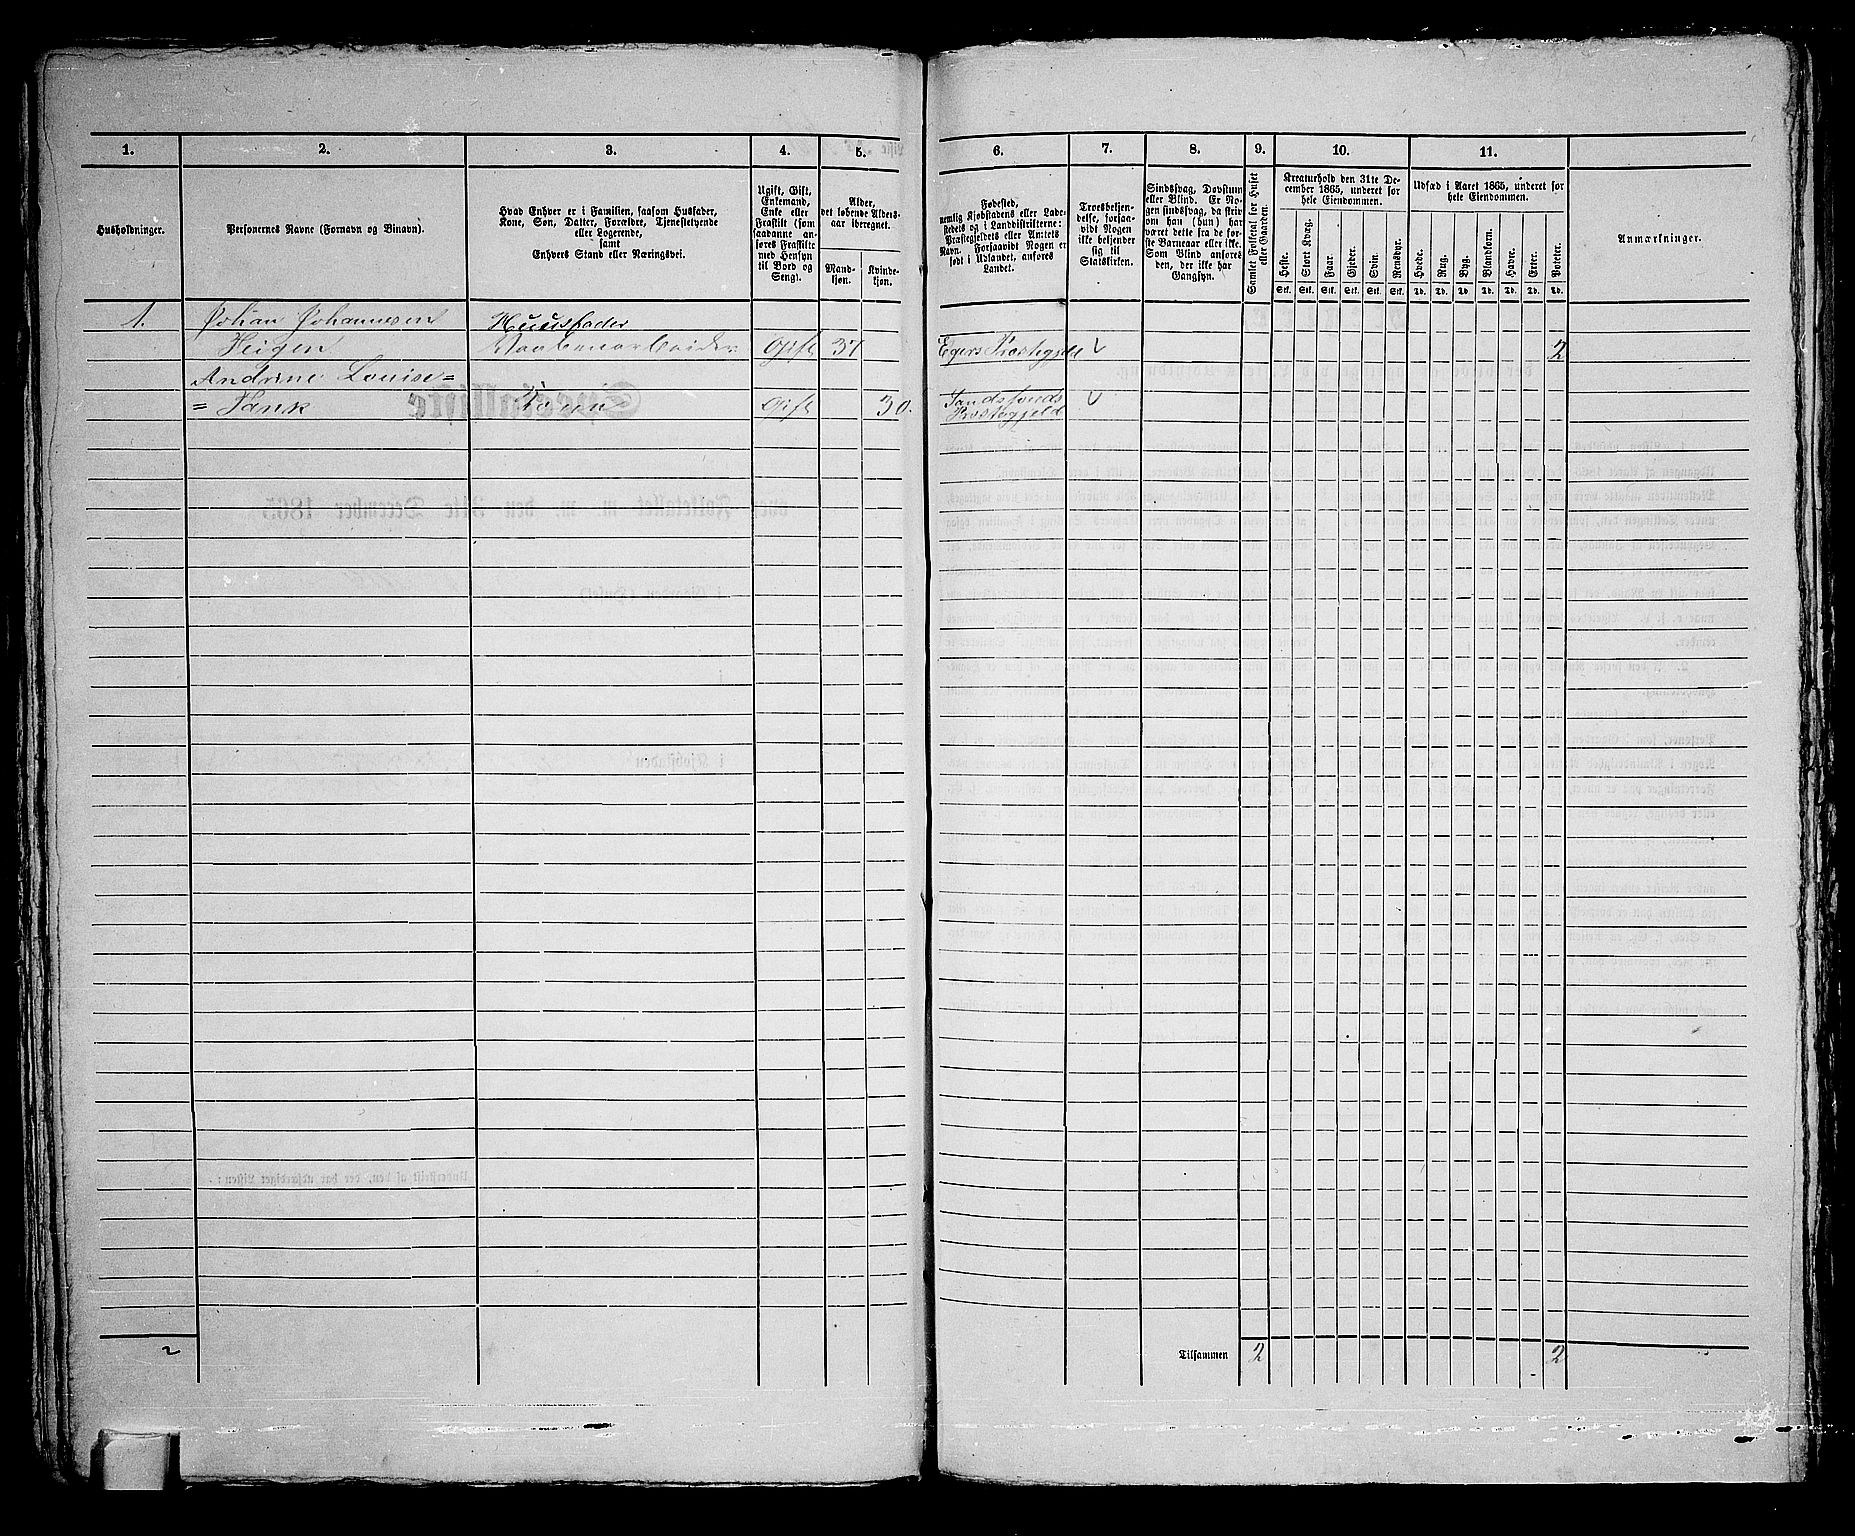 1.
2.
3.
4.
5.
Husholdninger.
Personernes Navne (Fornavn og Binavn).
Hvad Enhver er i Familien, saasom Husfader,
Kone, Søn, Datter, Forældre, Tjenestetyende
eller Logerende,
samt
Enhvers Stand eller Næringsvei.
Ugift, Gift,
Enkemand,
Enke eller
Fraskilt (som
saadanne an-
føres Fraskilte
med Hensyn
til Bord og
Seng).
Alder,
det løbende Alders-
aar iberegnet.
Mand-
kjøn.
Kvinde-
kjøn.
1. Johan Johannesen Huusfader
Heigen Gift 37
Andrine Louise=
=Tank Gift 30.
2
6.
7.
8.
9.
10.
11.
Fødested,
nemlig Kjøbstadens eller Lade-
stedets og i Landdistrikterne:
Præstegjeldets eller Amtets
Navn. Forsaavidt Nogen er
født i Udlandet, anføres
Landet.
Troesbekjen-
delse, forsaa-
vidt Nogen
ikke bekjender
sig til
Statskirken.
Sindssvag, Døvstum
eller Blind. Er No-
gen sindssvag, da skriv
om han (hun) har
været dette fra de før-
ste Barneaar eller ikke.
Som Blind anføres
den, der ikke har
Gangsyn.
Samlet Folketal for Huset
eller Gaarden.
Kreaturhold den 31te De-
cember 1865, underet for
hele Eiendommen.
Heste. Stort Kvæg. Faar. Gjeder. Svin. Rensdyr.
Stk. Stk. Stk. Stk. Stk. Stk.
Udsæd i Aaret 1865, underet for
hele Eiendommen.
Hvede. Rug. Byg. Blandkorn. Havre. Erter. Poteter.
Td. Td. Td. Td. Td. Td. Td.
Anmærkninger.
Egers Præstegjeld 2
Præstegjeld
Tilsammen 2 2